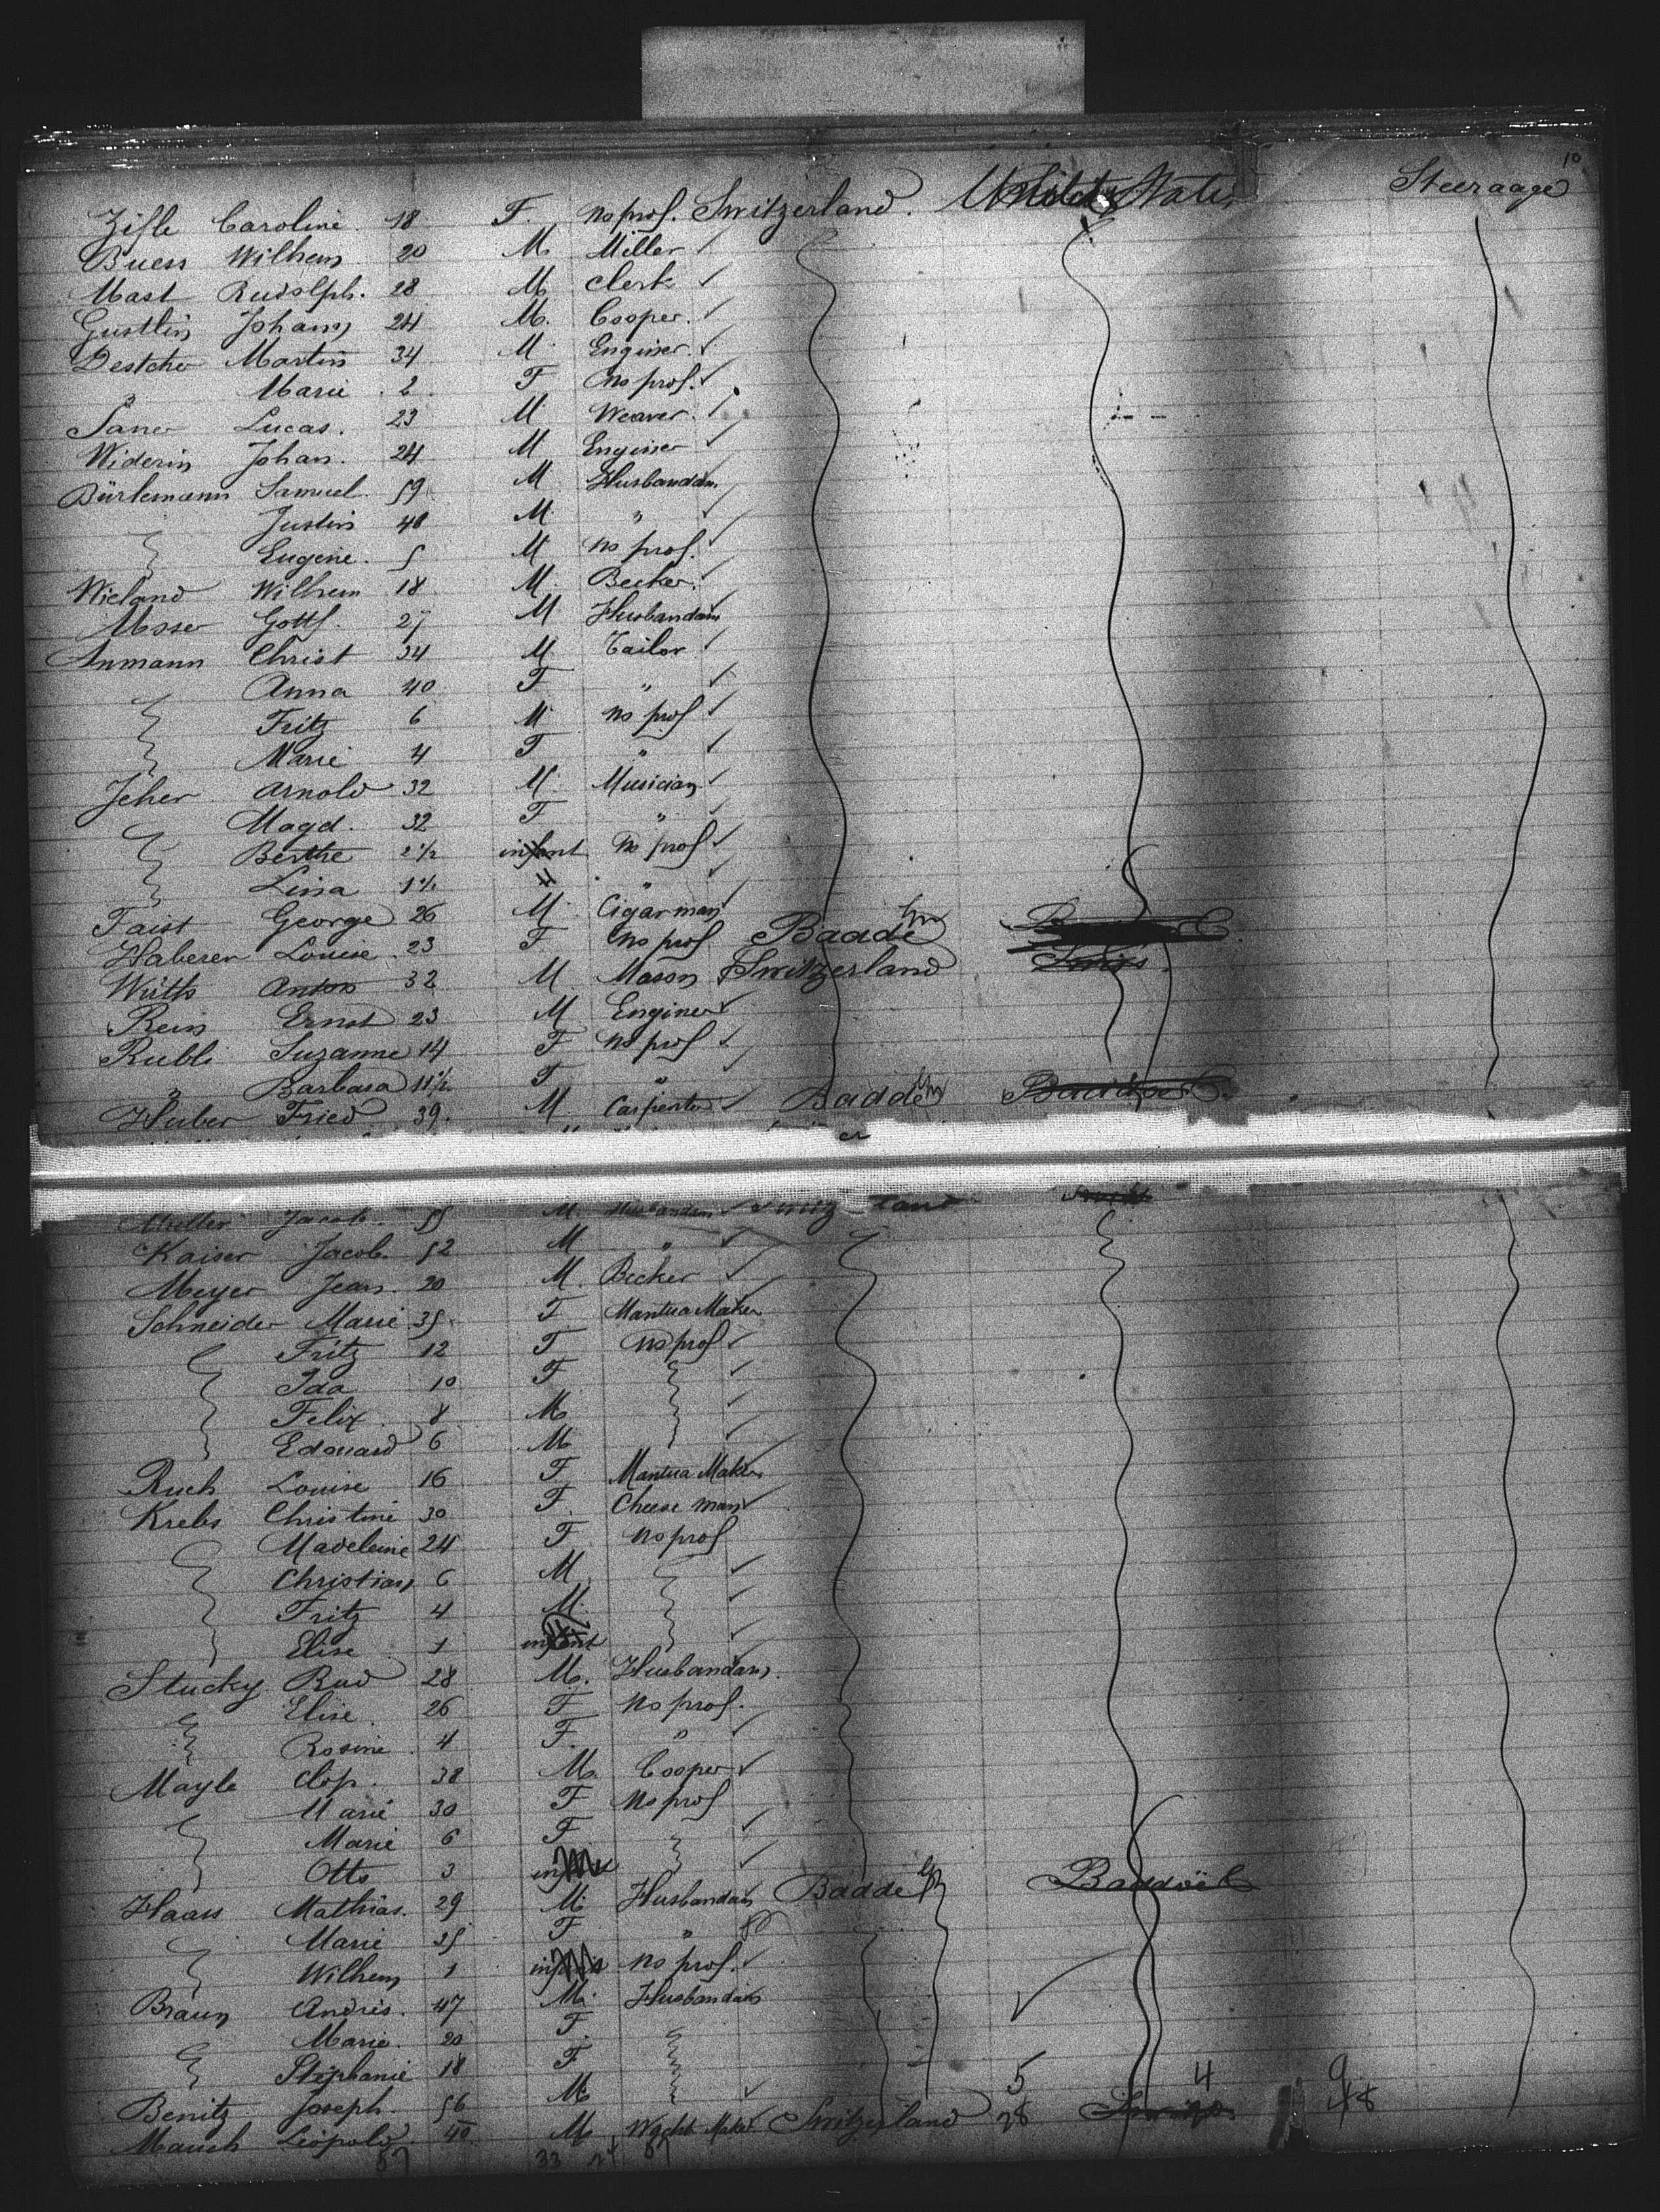 10
Zifle Caroline. 18 F. no prof. Switzerland. United States Steeraage
Buess Wilhem 20 M. Miller
Mast Rudolph. 28 M Clerk
Gustlin Johann 24 M. Cooper.
Destcher Martin 34 M. Enginer.
" Marie 2 F no prof.
Saner Lucas. 23 M Weaver.
Widerin Johan. 24 M Enginer
Bürlemann Samuel. 59 M Husbandm
Justin 48 M "
Eugene. 5 M no prof.
Wieland Wilhem 18 M. Becker.
Moser Gottf. 27 M Husbandm
Anmann Christ 34 M Tailor
Anna 40 F "
Fritz 6 M no prof
Marie 4 F "
Jeher Arnold 32 M. Musician
Magd. 32 F "
Berthe 2½ infant no prof
Lina 1½ " "
Faist George 26 M Cigarman
Haberer Louise. 23 F no prof Baade
Wüth Anton 32 M. Mason Switzerland Swiss.
Rein Ernst 23 M Enginer
Rubli Suzanne 14 F no prof
" Barbara 11½ F "
Huber Fried 39. M Carpenter Badde
Muller Jacob. 55 M. Husbandm
Kaiser Jacob. 52 M "
Meyer Jean. 20 M. Becker
Schneider Marie 35. F. Mantua Maker
Fritz 12 F no prof
Ida 10 F
Felix. 8 M
Edouard 6 M
Ruch Louise 16 F Mantua Maker
Krebs Christine 30 F. Cheese man
Madeleine 24 F no prof
Christian 6 M
Fritz 4 M
Elise 1 infant
Stucky Rud 28 M. Husbandm.
Elise 26 F no prof.
Rosine 4 F. "
Mayle 38 M. Cooper
Marie 30 F no prof
Marie 6 F
Otto 3
Haas Mathias. 29 M. Husbandm Badde
Marie 35 F "
Wilhem 1 no prof.
Braun Andres. 47 M. Husbandm
Marie. 20 F.
Stéphanie 18 F 5 4 9
Benitz Joseph. 56 M. 28 48
Mauch Léopold 40 M Wacht Maker Switzerland
87 33 87